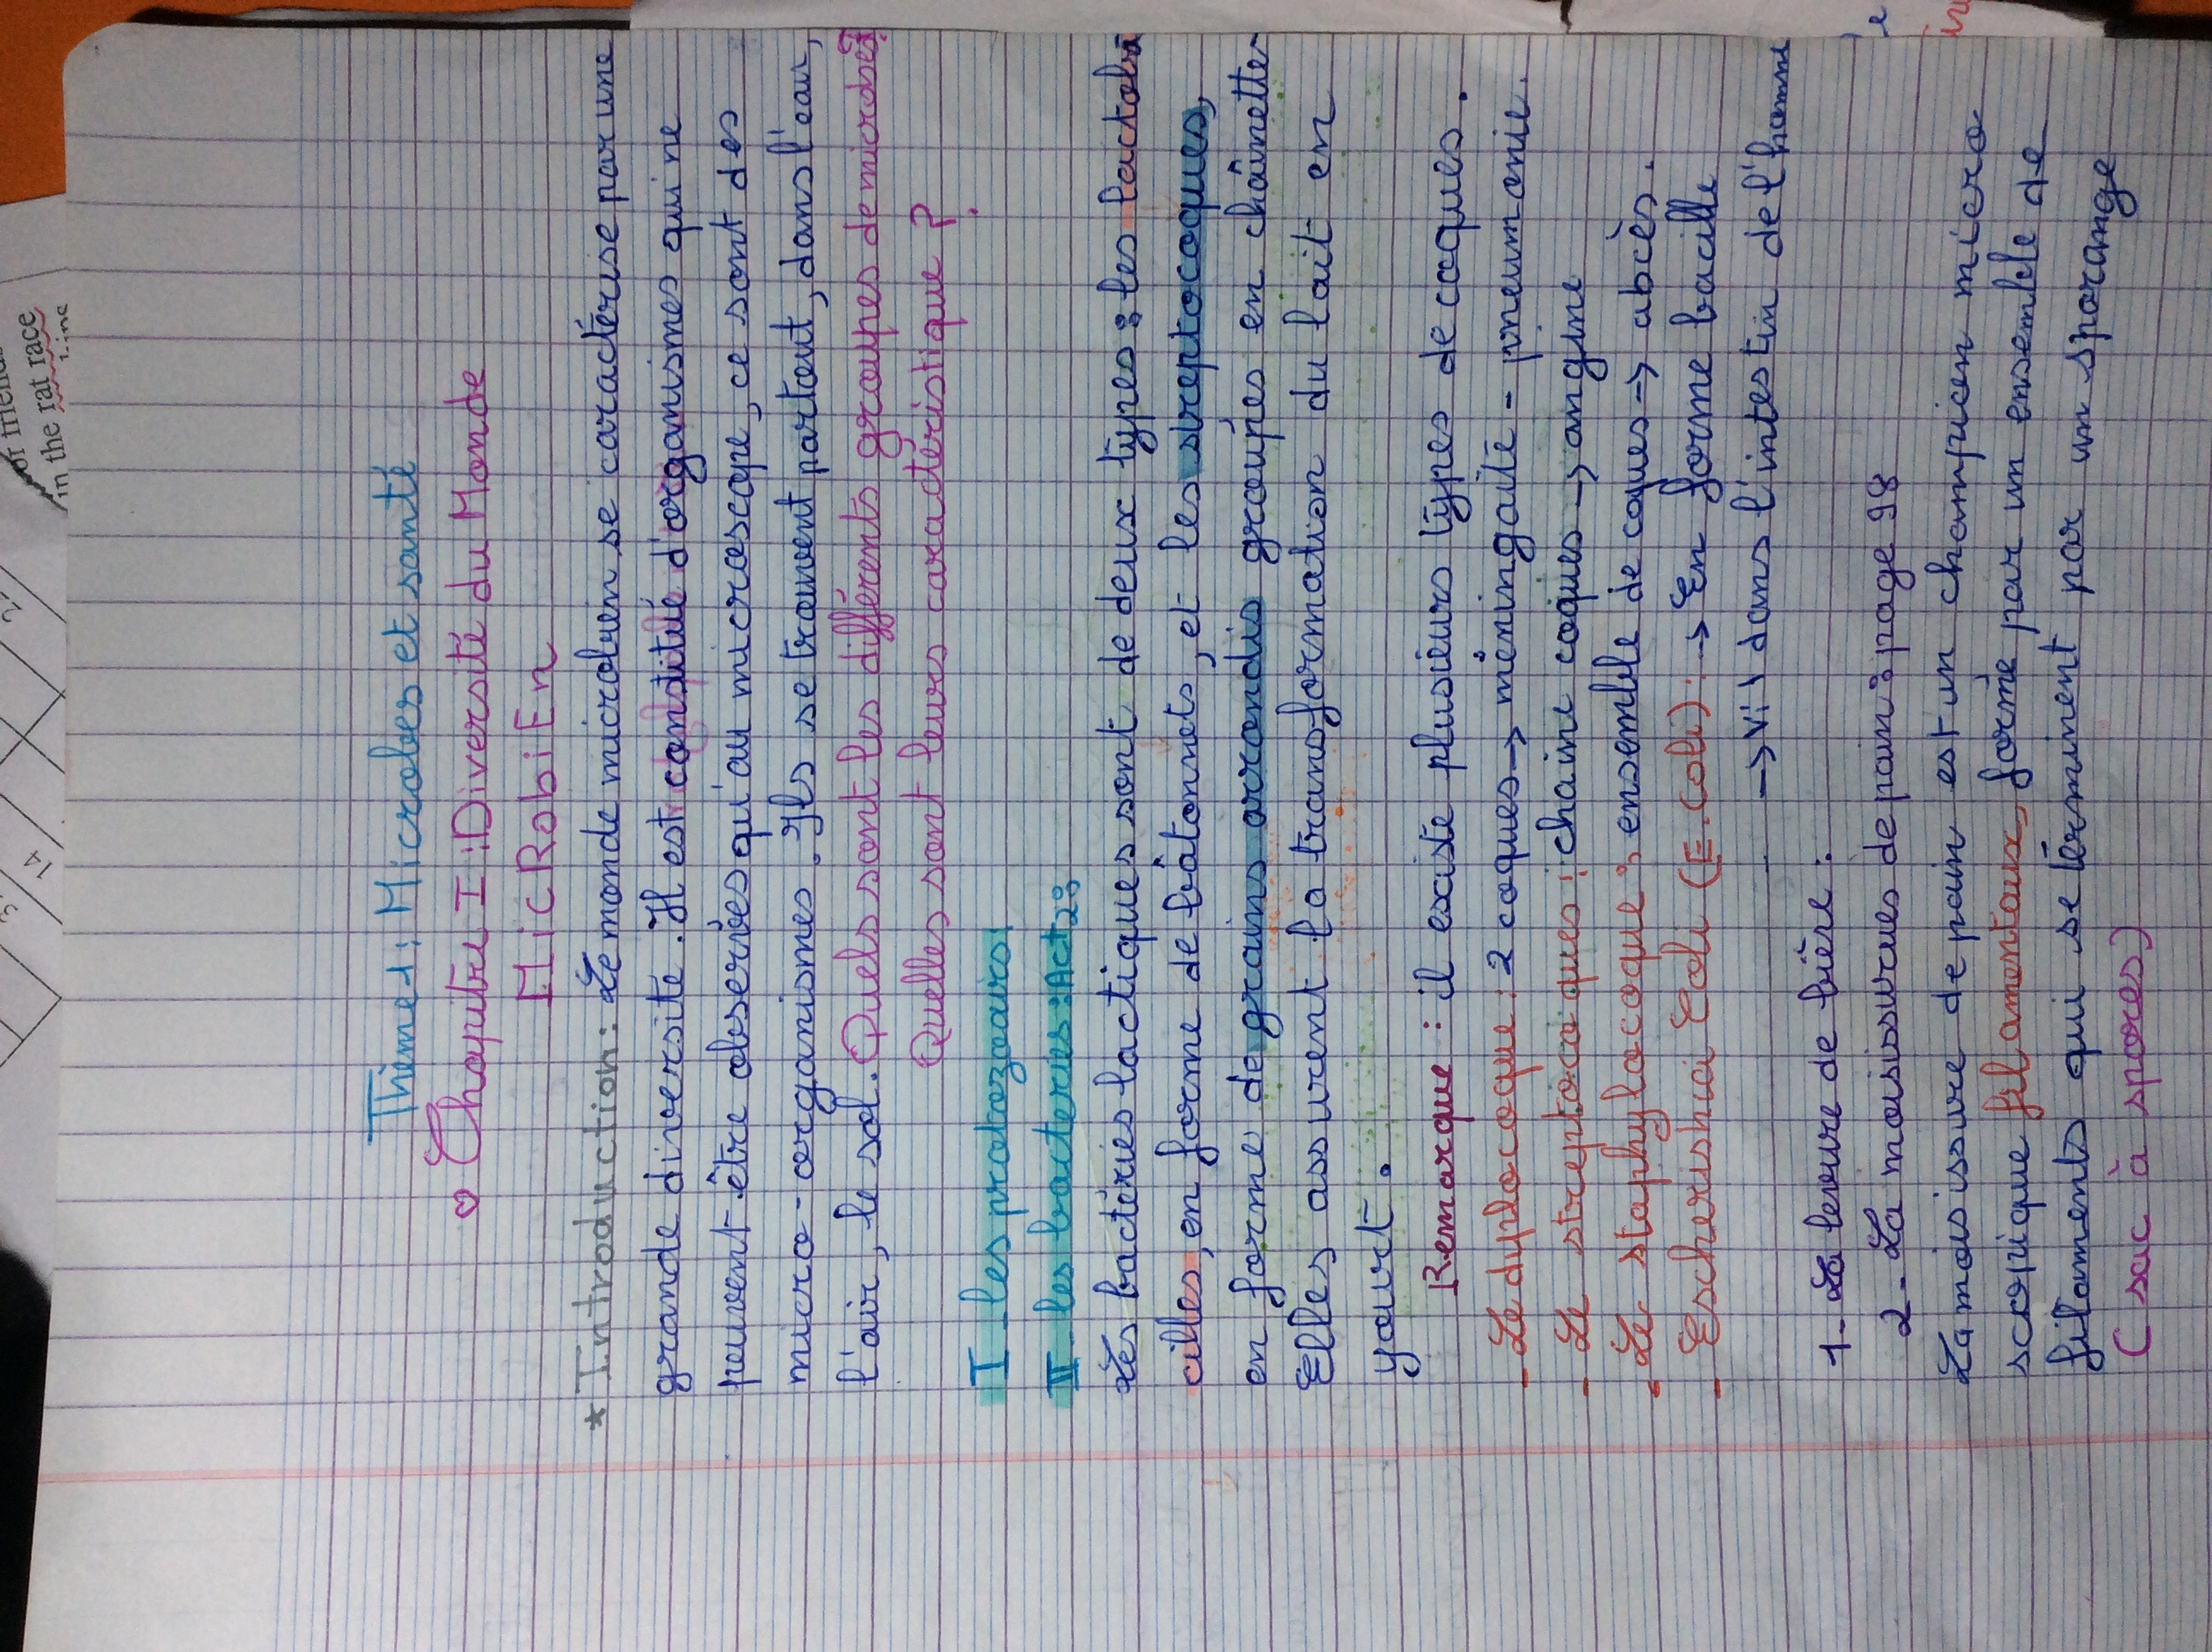 or friends
in the rat race
Thème 1: Microbes et santé
Chapitre I: Diversité du Monde
MicRobiEn
* Introduction: Le monde microbien se caractérise par une
grande diversité. Il est constitué d'organismes qui ne
peuvent être observées qu'au microscope, ce sont des
micro-organismes. Ils se trouvent partout, dans l'eau,
l'air, le sol. Quels sont les différents groupes de microbes?
Quelles sont leurs caractéristique ?
I - les protozoairs:
II - les bacteries: Act 2:
Les bactéries lactiques sont de deux types: les lactoba
cilles, en forme de bâtonnets, et les streptocoques,
en forme de grains arrondis groupés en chaînettes
Elles assurent la transformation du lait en
yourt.
Remarque: il existe plusieurs types de coques.
- Le dyplocoque: 2 coques → méningaite - pneumonie.
- Le streptoco ques: chaine coques → angine
- Le staphylocoque: ensemble de coques → abcès.
- Escherishai Coli (E.coli): → En forme bacille
→ Vit dans l'intestin de l'homme
1- La levure de bière:
2- La moisissures de pain: page 98
La moisissure de pain est un champien micro
scopique filamentaux, formé par un ensemble de
filaments qui se términent par un sporange
( sac à spores)